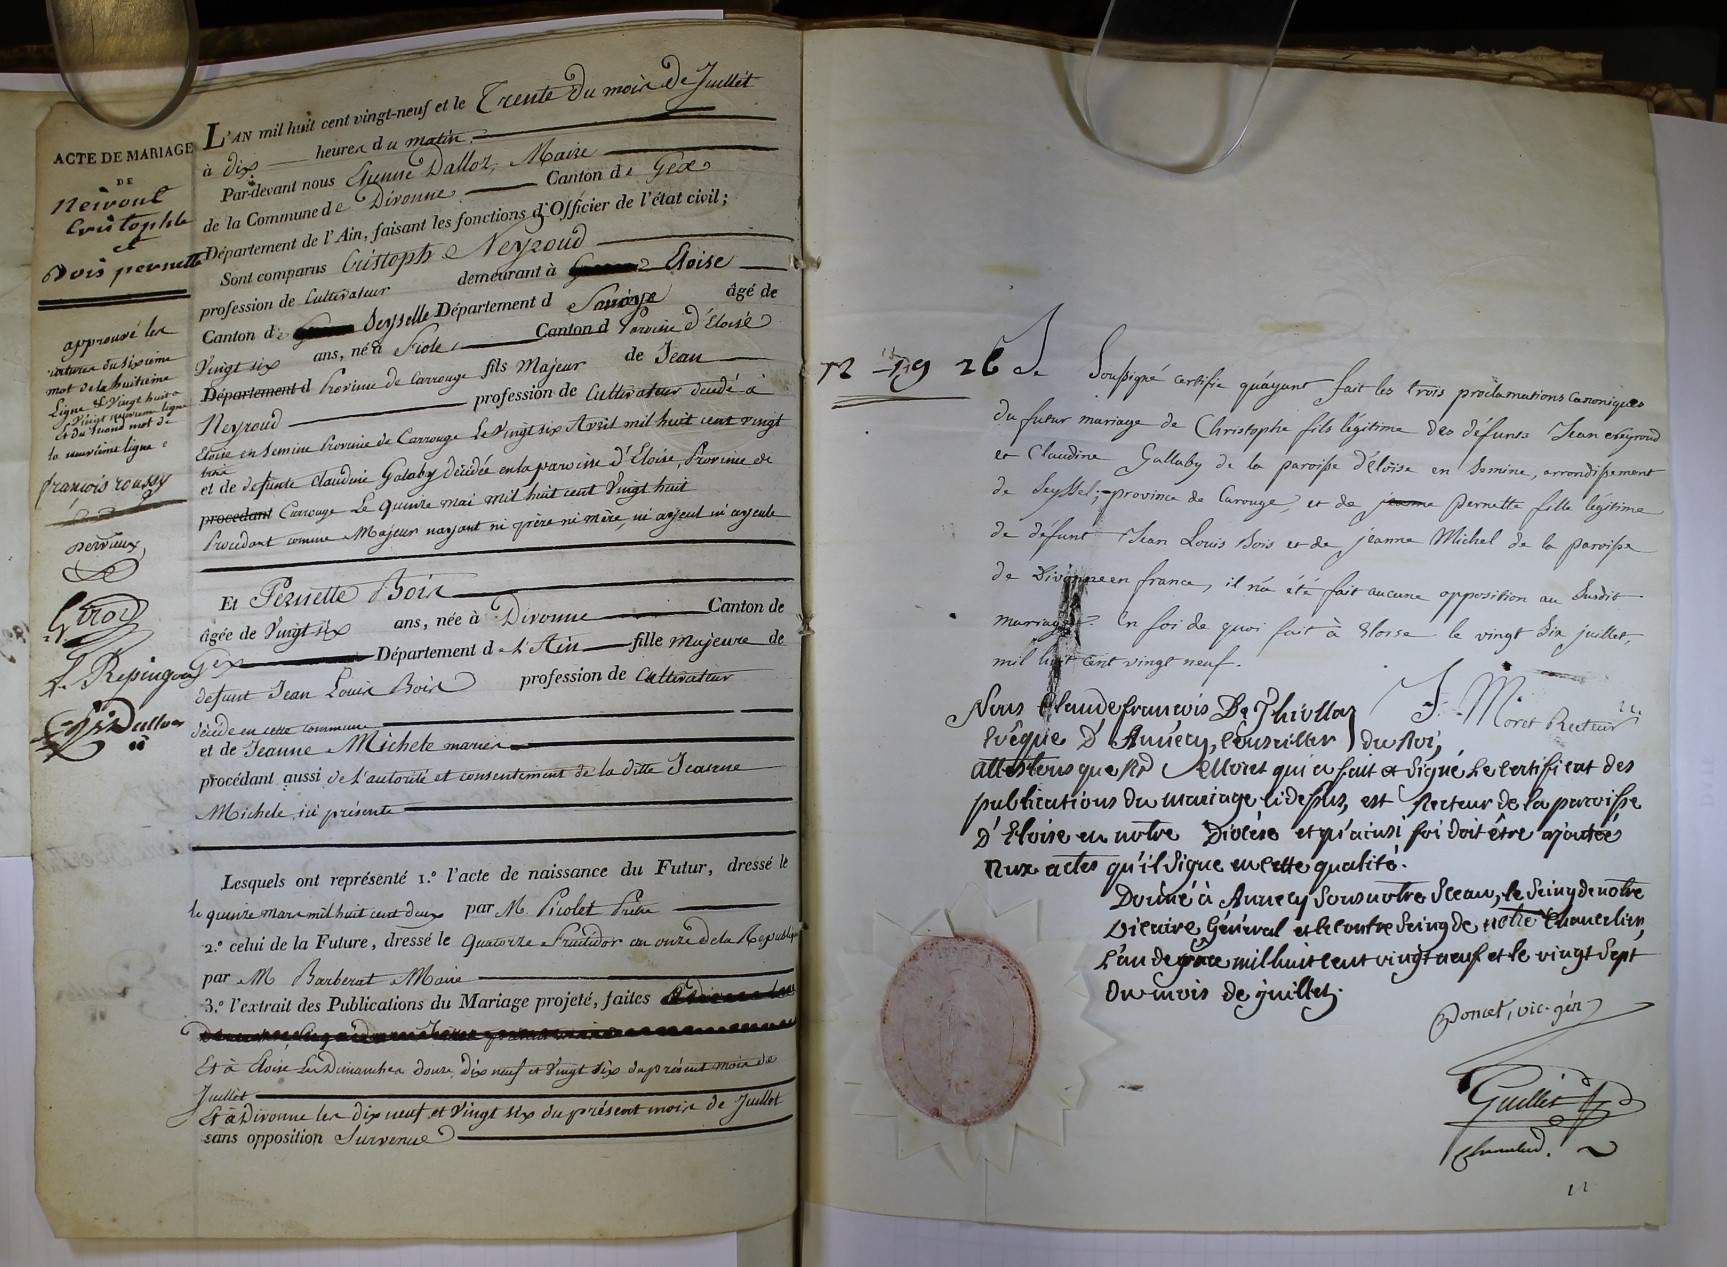 ACTE DE MARIAGE
DE
Neirout
Cristophle
et
Bois pernette
approuvé les
ratures du sixieme
mot de la huitieme
Ligne & Vingt huit
Vingt neuvieme ligne
Et du second mot de
la neuvieme ligne
françois roussy
pervaux
Giroz
L. Repingon
L'AN mil huit cent vingt-neuf et le Trente du mois de Juillet
à dix heures du matin.
Par-devant nous Etienne Dalloz, Maire
de la Commune de Divonne Canton de Gex
Département de l'Ain, faisant les fonctions d'Officier de l'état civil;
Sont comparus Cristoph Neyroud
profession de Cultivateur demeurant à Eloise
Canton de Seysselle Département d Savoye âgé de
Vingt six ans, né à Fiole Canton d Paroisse d'Eloise
Département d Province de Carrouge fils Majeur de Jean
Neyroud profession de Cultivateur décédé à
Eloise en Semine Province de Carrouge Le Vingt six Avril mil huit cent vingt
trois
et de defunte Claudine Galaby décédée en la paroisse d'Eloise, Province de
procédant Carrouge Le Quinze mai mil huit cent Vingt huit
Procédant comme Majeur nayant ni père ni mère, ni ayeul ni ayeule
Et Pernette Bois
âgée de Vingt six ans, née à Divonne Canton de
Gex Département de L'Ain fille majeure de
defunt Jean Louis Bois profession de Cultivateur
décédé en cette commune
et de Jeanne Michele mariés
procédant aussi de L'autorité et consentiment de la ditte Jeanne
Michele ici présente
Lesquels ont représenté 1.º l'acte de naissance du Futur, dressé le
le quinze mars mil huit cent deux par M Picolet Prêtre
2.º celui de la Future, dressé le Quatorze Fructidor an onze de la République
par M Barberat Maire
3.º l'extrait des Publications du Mariage projeté, faites
Et à Eloise Les Dimanches douze dix neuf et Vingt six du présent mois de
Juillet
Et à Divonne les dix neuf et Vingt six du présent mois de Juillet
sans opposition Survenue
12 - 19 26 Je Soussigné certifie qu'ayant fait les trois proclamations Canoniques
du futur mariage de Christophe fils légitime des défunts Jean Neyroud
et Claudine Gallaby de la paroisse d'éloise en Semine, arrondissement
de Seyssel, province de Carouge, et de jeanne pernette fille légitime
de défunt Jean Louis Bois et de jeanne Michel de la paroisse
de Divonne en france, il n'a été fait aucune opposition au Susdit
mariage. En foi de quoi fait à Eloise le vingt Six juillet,
mil huit cent vingt neuf.
J. Moret Recteur
Nous Claude françois De Thiollaz
Evêque D'Annecy, Conseiller du Roi,
attestons que Rd Moret qui a fait et Signé le certificat des
publications du mariage cidessus, est Recteur de la paroisse
D'Eloise en notre Diocèse et qu'ainsi foi doit être ajoutée
aux actes qu'il Signe en cette qualité.
Donné à Annecy Sous notre Sceau, le Seing de notre
Vicaire Général et le contre Seing de notre Chancelier,
L'an de grace mil huit cent vingt neuf et le vingt Sept
Du mois de juillet.
Poncet, vic. gén
Guillet